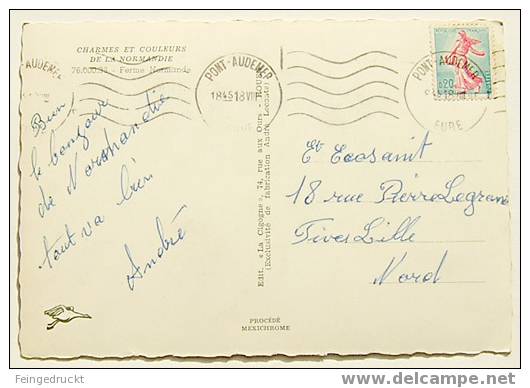 CHARMES ET COULEURS
DE LA NORMANDIE
76.000.33 - Ferme Normande
Bien
le bonjour
de Normandie
tout va bien
André
PONT-AUDEMER
1845 18 VII
PONT-AUDEMER
EURE
0,20
Edit. «La Cigogne», 74, rue aux Ours - ROUEN
(Exclusivité de fabrication André Leconte)
Ets Ecosanit
18 rue Pierre Legrand
Fives Lille
Nord
PROCÉDÉ
MEXICHROME
Feingedruckt
www.delcampe.net